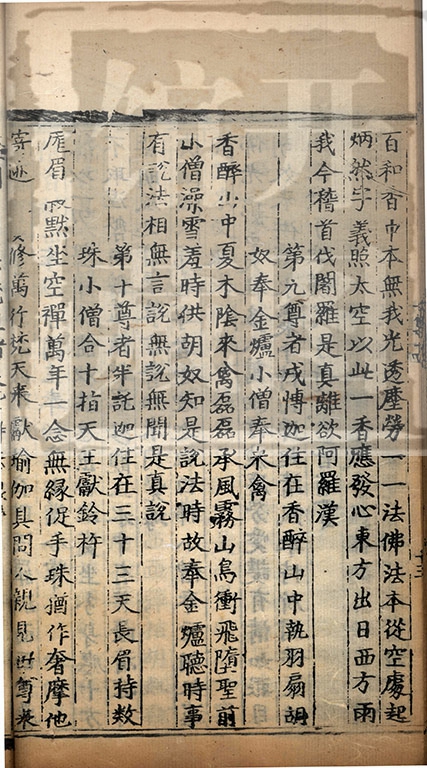 百和香中本無我光透塵勞一一法佛法本從空處起
炳然字義照太空以此一香應發心東方出日西方雨
我今稽首伐闍羅是真離欲阿羅漢
第九尊者戍愽迦住在香醉山中執羽扇胡
奴奉金爐小僧奉米禽
香醉山中夏木陰來禽磊磊承風霧山鳥衝飛墮聖前
小僧澡雪羞時供胡奴知是說法時故奉金爐聽時事
有說法相無言說無說無聞是真說
第十尊者半託迦住在三十三天長眉持數
珠小僧合十指天王獻鈴杵
厖眉 默坐空禪萬年一念無緣促手珠猶作奢摩他
寄迹 修萬行梵天來獻瑜伽具問 親見世尊來